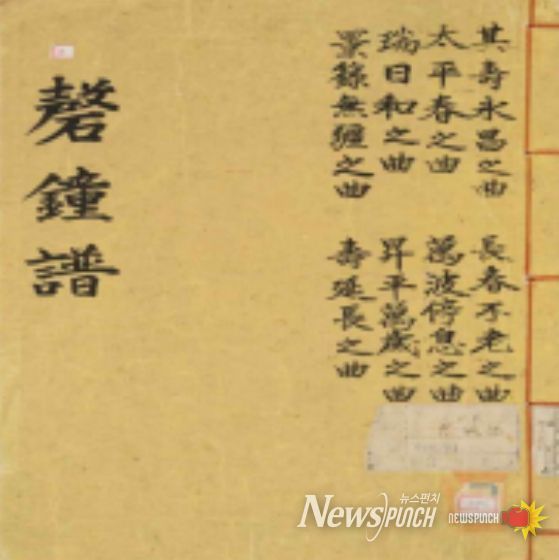 其壽永昌之曲
長春不老之曲
太平春之曲
萬波停息之曲
瑞日和之曲
昇平萬歲之曲
景籙無疆之曲
壽延長之曲
磬鐘譜
뉴스펀치
NewsPunch
NEWSPUNCH